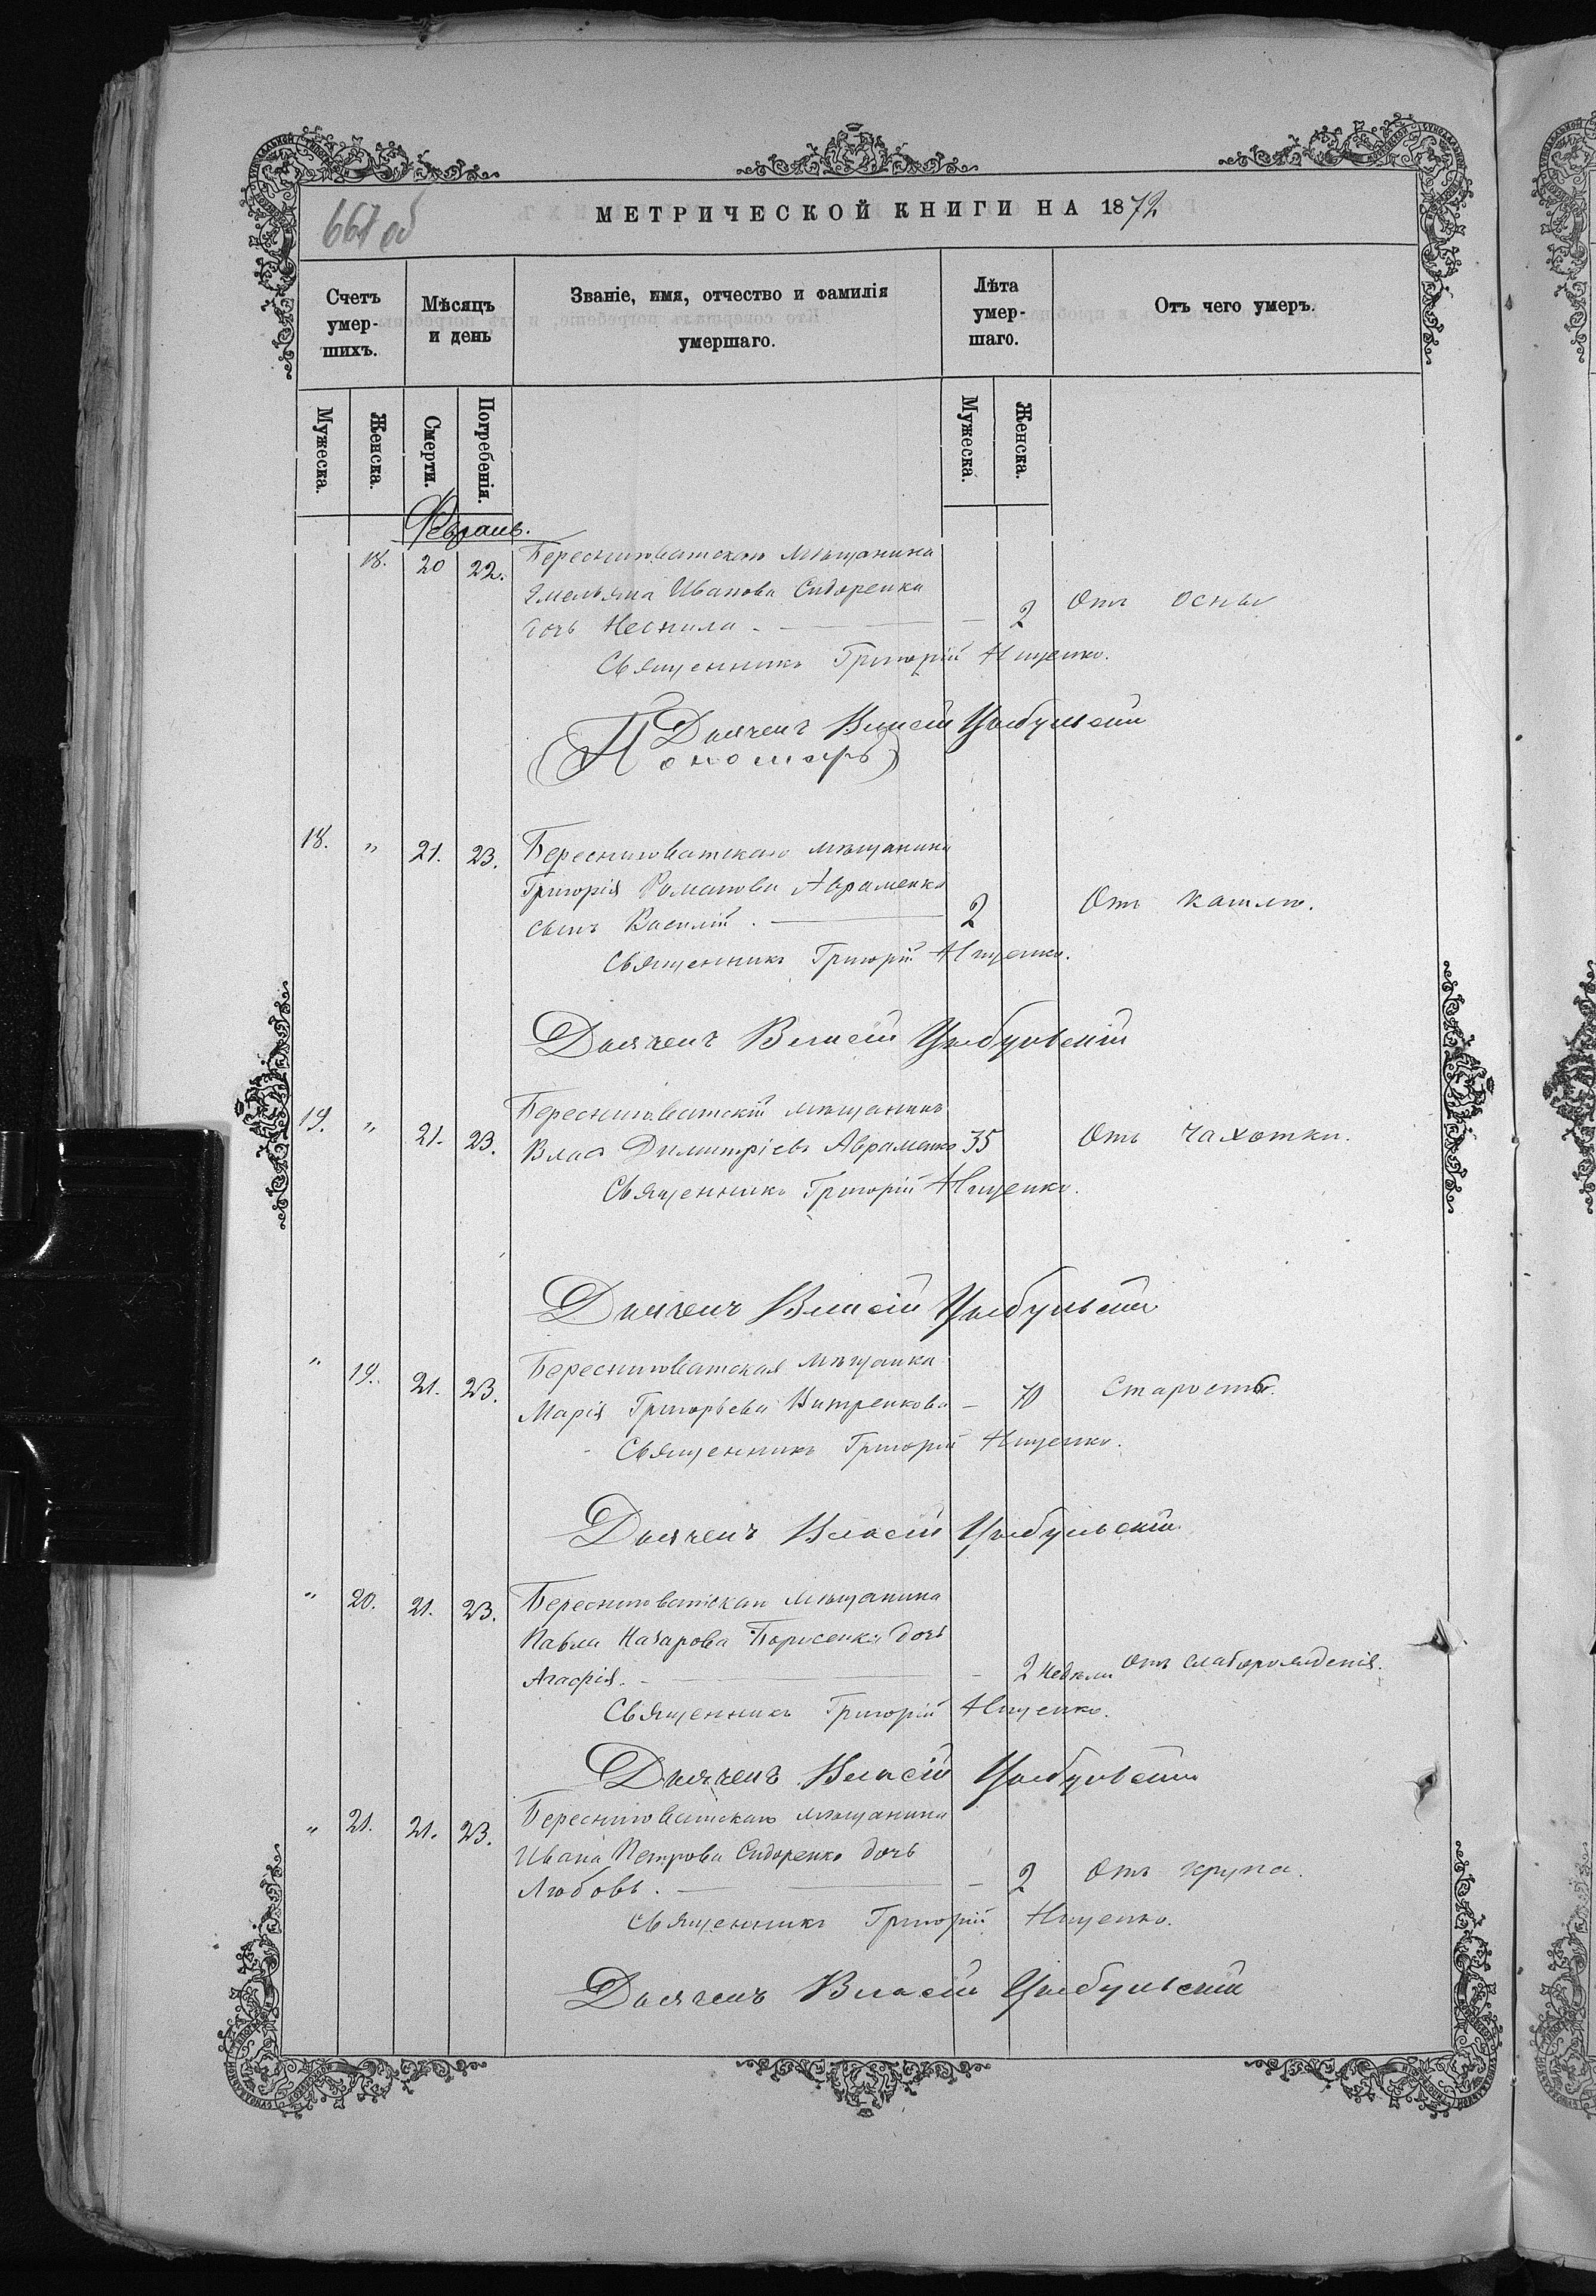 667 об
МЕТРИЧЕСКОЙ КНИГИ НА 1872
Счетъ умер-шихъ.
Мѣсяцъ и день
Званіе, имя, отчество и фамилія умершаго.
Лѣта умер-шаго.
Отъ чего умеръ.
Мужеска.
Женска.
Смерти.
Погребенія.
Мужеска.
Женска.
Февраль.
18. 20 22. Бересниговатскаго мѣщанина
Емельяна Иванова Сидоренка
дочь Неонила. — 2 Отъ оспы
Священникъ Григорій Нищенко.
Дьячекъ Власій Цыбульскій
(Пономарь)
18. " 21. 23. Бересниговатскаго мѣщанина
Григорія Романова Авраменко
сынъ Василій. 2 Отъ кашлю.
Священникъ Григорій Нищенко.
Дьячекъ Власій Цыбульскій
19. " 21. 23. Бересниговатскій мѣщанинъ
Влас Димитріевъ Авраменко 35 Отъ чахотки.
Священникъ Григорій Нищенко.
Дьячекъ Власій Цыбульскій
" 19. 21. 23. Бересниговатская мѣщанка
Марія Григорьева — 70 Старость.
Священникъ Григорій Нищенко.
Дьячекъ Власій Цыбульскій
" 20. 21. 23. Бересниговатскаго мѣщанина
Павла Назарова Борисенка дочь
Агафія. — 2 недѣли Отъ слаборожденія.
Священникъ Григорій Нищенко.
Дьячекъ Власій Цыбульскій
" 21. 21. 23. Бересниговатскаго мѣщанина
Ивана Петрова Сидоренко дочь
Любовь. — 2 Отъ крупа.
Священникъ Григорій Нищенко.
Дьячекъ Власій Цыбульскій